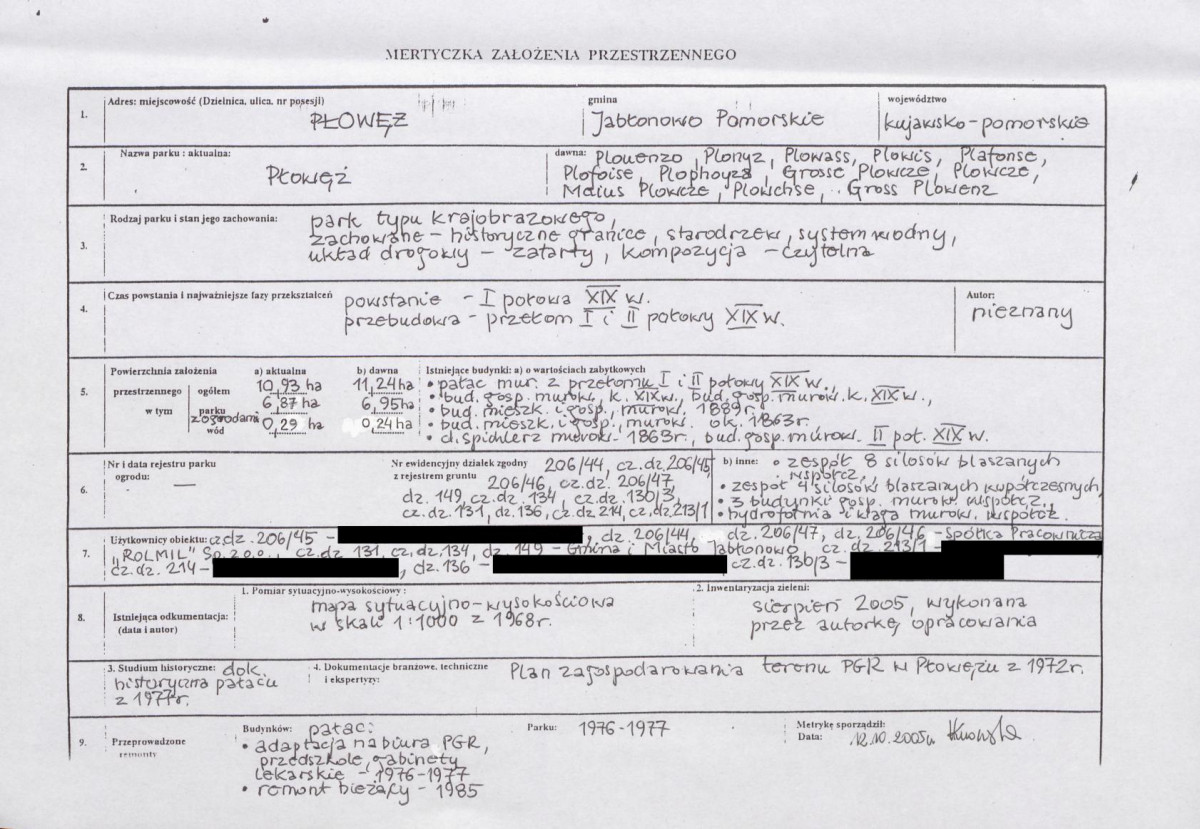 MERTYCZKA ZAŁOŻENIA PRZESTRZENNEGO
1. Adres: miejscowość (Dzielnica, ulica, nr posesji)
PŁOWĘŻ
gmina
Jabłonowo Pomorskie
województwo
kujawsko-pomorskie
2. Nazwa parku : aktualna:
Płowęż
dawna: Plowenzo, Plonyz, Plowass, Plowis, Plafonse,
Plofoise, Plophoyza, Grosse Plowcze, Plowcze,
Maius Plowcze, Plowchse, Gross Plowenz
3. Rodzaj parku i stan jego zachowania:
park typu krajobrazowego,
zachowane - historyczne granice, starodrzew, system wodny,
układ drogowy - zatarty, kompozycja - czytelna
4. Czas powstania i najważniejsze fazy przekształceń
powstanie - I połowa XIX w.
przebudowa - przełom I i II połowy XIX w.
Autor:
nieznany
5. Powierzchnia założenia a) aktualna b) dawna
przestrzennego ogółem 10,93 ha 11,24 ha
w tym parku z ogrodami 6,87 ha 6,95 ha
wód 0,29 ha 0,24 ha
Istniejące budynki: a) o wartościach zabytkowych
• pałac mur. z przełomu I i II połowy XIX w.
• bud. gosp. murow., k. XIX w., bud. gosp. murow. k. XIX w.,
• bud. mieszk. i gosp., murow. 1889 r.
• bud. mieszk. i gosp., murow. ok. 1863 r.
• d. spichlerz murow. 1863 r., bud. gosp. murow. II poł. XIX w.
6. Nr i data rejestru parku
ogrodu: —
Nr ewidencyjny działek zgodny
z rejestrem gruntu
206/44, cz. dz. 206/45
206/46, cz. dz. 206/47,
dz. 149, cz. dz. 134, cz. dz. 130/3,
cz. dz. 131, dz. 136, cz. dz. 214, cz. dz. 213/1
b) inne: • zespół 8 silosów blaszanych
współcz.,
• zespół 4 silosów blaszanych współczesnych,
• 3 budynki gosp. murow. współcz.,
• hydrofornia i waga murow. współcz.
7. Użytkownicy obiektu: cz. dz. 206/45 - , dz. 206/44, dz. 206/47, dz. 206/46 - Spółka Pracownicza
"ROLMIL" Sp. z o.o., cz. dz. 131, cz. dz. 134, dz. 149 - Gmina i Miasto Jabłonowo cz. dz. 213/1 -
cz. dz. 214 - , dz. 136 - cz. dz. 130/3 -
8. Istniejąca odkumentacja:
(data i autor)
1. Pomiar sytuacyjno-wysokościowy :
mapa sytuacyjno-wysokościowa
w skali 1:1000 z 1968 r.
2. Inwentaryzacja zieleni:
sierpień 2005, wykonana
przez autorkę opracowania
3. Studium historyczne: dok.
historyczna pałacu
z 1977 r.
4. Dokumentacje branżowe, techniczne
i ekspertyzy:
Plan zagospodarowania terenu PGR w Płowężu z 1972 r.
9. Przeprowadzone
remonty
Budynków: pałac:
• adaptacja na biura PGR,
przedszkole, gabinety
lekarskie - 1976-1977
• remont bieżący - 1985
Parku: 1976-1977
Metrykę sporządził:
Data: 12.10.2005r.